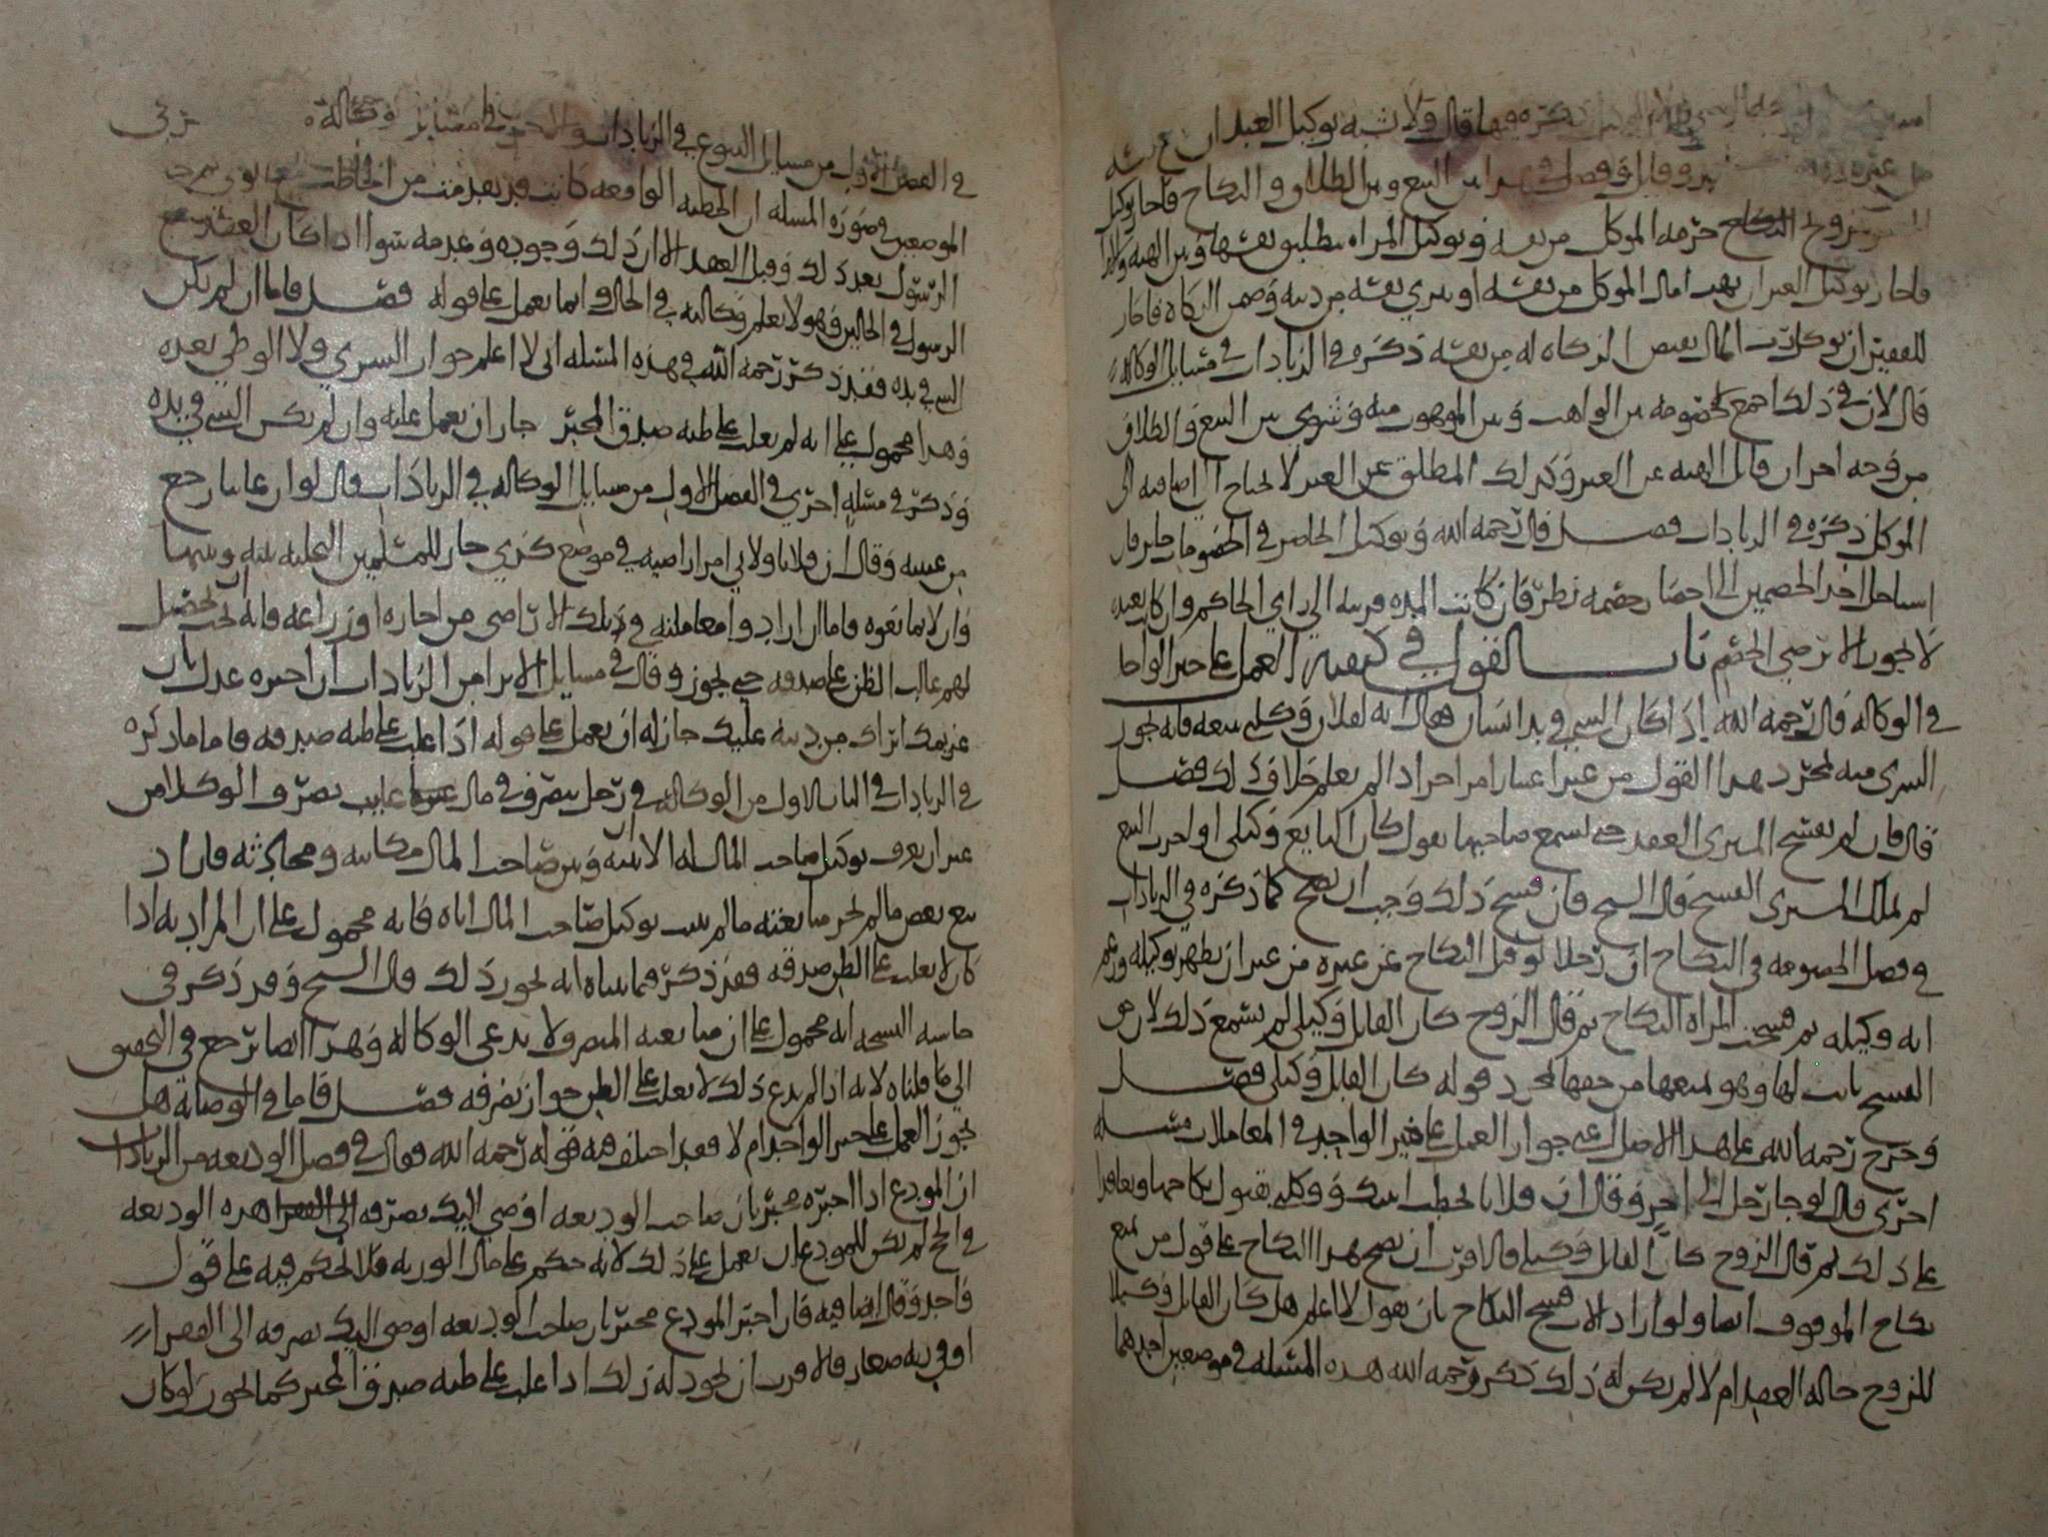 ذكره فيها قال ولا يشبه توكيل العبد ان
بين البيع وبين الطلاق والنكاح فاجاز توكيل
النكاح حرمه الموكل من نفسه وتوكيل المراه بتطليق نفسها وبين الهبه
فاجاز توكيل الغير ان يهب مال الموكل من نفسه او يبري نفسه من دينه وقبض الزكاة فاجاز
للفقير ان يوكل رب المال بقبض الزكاه له من نفسه ذكره في الزيادات في مسايل الوكاله
قال لان في ذلك اجمع الخصومه بين الواهب وبين الموهوب منه وتسوي بين البيع والطلاق
من وجه اخر ان قابل الهبه عن الغير وكذلك المطلق عن الغير لا يحتاج الى اضافته الى
الموكل ذكره في الزيادات فصل قال رحمه الله وتوكيل الحاضر في الخصومات جايز فان
احد الخصمين الى احضار خصمه نظر فان كانت البلده قريبه الى راي الحاكم وان كانت بعيده
لا يجوز الا برضى الخصم باب القول في كيفية العمل على خبر الواحد
في الوكاله قال رحمه الله اذا كان الشي في يد انسان فقال انه لفلان وكلني ببيعه فانه يجوز
الشرى منه بمجرد هذا القول من غير اعتبار امر اخر اذا لم يعلم خلاف ذلك فصل
قال فان لم يفسخ المشتري العقد حتى يسمع صاحبها يقول كان البايع وكيلي او اجزت البيع
لم يملك المشتري الفسخ قال الشيخ فان فسخ ذلك وجب ان يصح كما ذكره في الزيادات
في فصل الخصومه في النكاح ان رجلا لو قبل النكاح عن غيره من غير ان يظهر توكيله وزعم
انه وكيله ثم فسخت المراه النكاح ثم قال الزوج كان القابل وكيلي لم يسمع ذلك لان هو
الفسخ ثابت لها وهو يمنعها من حقها بمجرد قوله كان القابل وكيلي فصل
وخرج رحمه الله على هذا الاصل على جواز العمل على خبر الواحد في المعاملات مسله
اخرى قال لو جا رجل الى اخر وقال ان فلانا يخطب ابنتك ووكلني بقبول نكاحها وتعاقدا
على ذلك ثم قال الزوج كان القابل وكيلي فالاقرب ان يصح هذا النكاح على قول من يمنع
نكاح الموقوف ايضا ولو اراد الاب فسخ النكاح بان يقول لا اعلم هل كان القابل وكيلا
للزوج حاله العقد ام لا لم يكن له ذلك ذكر رحمه الله هذه المسئله في موضعين احدهما
في الفصل الاول من مسايل البيوع في الزيادات والاخر في مسايل وكالة
الموضعين وصورة المسله ان الخطبه الواقعه كانت قد تقدمت من الخاطب
الرسول بعد ذلك وقبل العقد الا ان ذلك وجوده وعدمه سوا اذا كان العقد مع
الرسول في الحالين وهو لا يعلم وكالته في الحال وانما يعمل على قوله فصل فاما ان لم يكن
الشي في يده فقد ذكر رحمه الله في هذه المسله اني لا اعلم جواز الشرى ولا الوطي بعده
وهذا محمول على انه لم يغلب على ظنه صدق المخبر جاز ان يعمل عليه وان لم يكن الشي في يده
وذكر في مسله اخرى في الفصل الاول من مسايل الوكاله في الزيادات قال لو ان غايبا رجع
من غيبته وقال ان فلانا ولاني امر اراضيه في موضع كذى جاز للمسلمين التخليه بينه وبينها
وان لا يمانعوه فاما ان ارادوا معاملته في تلك الاراضي من اجاره او زراعه فانه يجب ان يحصل
لهم غالب الظن على صدقه حتى يجوز وقال في مسايل الابرا من الزيادات ان اخبره عدل بان
غريمك ابراك من دينه عليك جاز له ان يعمل على قوله اذا غلب على ظنه صدقه فاما ما ذكره
في الزيادات في الباب الاول من الوكاله في رجل يتصرف في مال غايب تصرف الوكلا من
غير ان يعرف توكيل صاحب المال له الا ان بينه وبين صاحب المال مكاتبه ومحادثه فاراد
بيع بعض ما لم يجز مبايعته ما لم يثبت توكيل صاحب المال اياه فانه محمول على ان المراد به اذا
كان لا يغلب على الظن صدقه فقد ذكر فيما بيناه انه يجوز ذلك قال الشيخ وقد ذكر في
حاشيه النسخه انه محمول على ان مبايعه المتصرف لا يدعي الوكاله وهذا ايضا يرجع في التحقيق
الى ما قلناه لانه اذا لم يدع ذلك لا يغلب على الظن جواز تصرفه فصل فاما في الوصاية هل
يجوز العمل على خبر الواحد ام لا فقد اختلف فيه قوله رحمه الله فقال في فصل الوديعه من الزيادات
ان المودع اذا اخبره مخبر بان صاحب الوديعه اوصى اليك بصرف هذه الوديعه
في الحج لم يكن للمودع ان يعمل على ذلك لانه حكم على مال الورثه فلا يحكم فيه على قول
واحد وقال ايضا فيه فان اخبر المودع مخبر بان صاحب الوديعه اوصى اليك بصرفه الى الفقرا
او في بنه صغار فالاقرب ان يجوز له ذلك اذا غلب على ظنه صدق المخبر كما يجوز لو كان